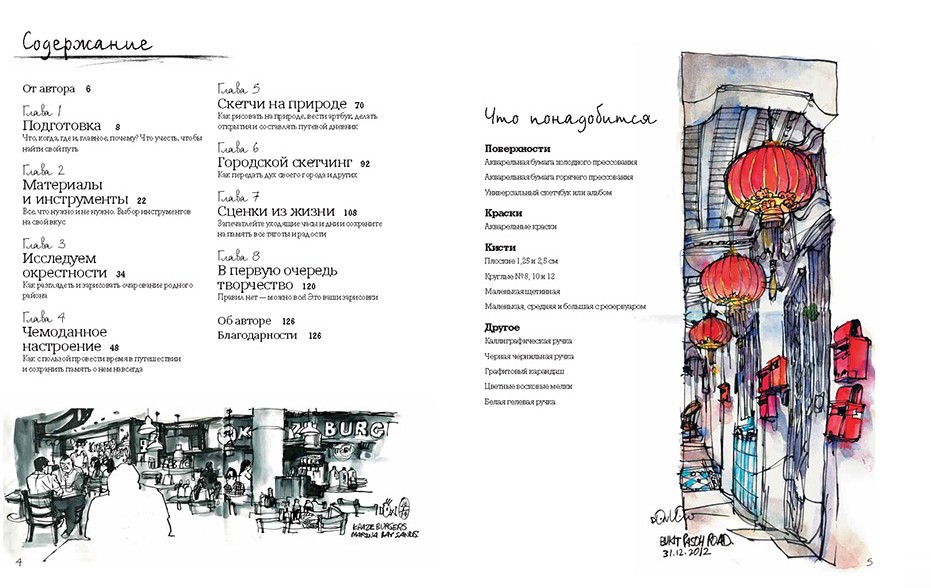 Содержание
От автора 6
Глава 1
Подготовка 8
Что, когда, где и, главное, почему? Что учесть, чтобы
найти свой путь
Глава 2
Материалы
и инструменты 22
Все, что нужно и не нужно. Выбор инструментов
на свой вкус
Глава 3
Исследуем
окрестности 34
Как разглядеть и зарисовать очарование родного
района
Глава 4
Чемоданное
настроение 48
Как с пользой провести время в путешествии
и сохранить память о нем навсегда
Глава 5
Скетчи на природе 70
Как рисовать на природе, вести артбук, делать
открытия и составлять путевой дневник
Глава 6
Городской скетчинг 92
Как передать дух своего города и других
Глава 7
Сценки из жизни 108
Запечатлейте уходящие часы и дни и сохраните
на память все тяготы и радости
Глава 8
В первую очередь
творчество 120
Правил нет — можно все! Это ваши зарисовки
Об авторе 126
Благодарности 126
BURG
KRAZE BURGERS
MARINA BAY SANDS
4
Что понадобится
Поверхности
Акварельная бумага холодного прессования
Акварельная бумага горячего прессования
Универсальный скетчбук или альбом
Краски
Акварельные краски
Кисти
Плоские 1,25 и 2,5 см
Круглые № 8, 10 и 12
Маленькая щетинная
Маленькая, средняя и большая с резервуаром
Другое
Каллиграфическая ручка
Черная чернильная ручка
Графитовый карандаш
Цветные восковые мелки
Белая гелевая ручка
BUKIT PASOH ROAD.
31.12.2012
5